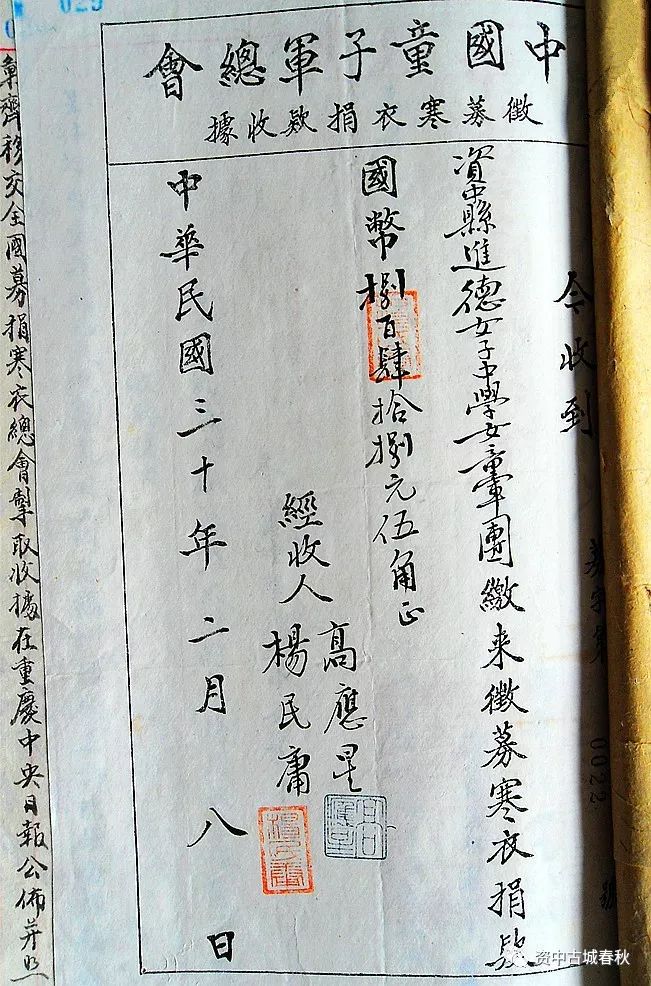 中國童子軍總會
徵募寒衣捐欵收據
今收到
資中縣進德女子中學女童軍團繳来徵募寒衣捐欵
國幣捌百肆拾捌元伍角正
經收人
高應星
楊民庸
中華民國三十年二月八日
彙齊移交全國募捐寒衣總會掣取收據在重慶中央日報公佈并照
0022
號
025
资中古城春秋